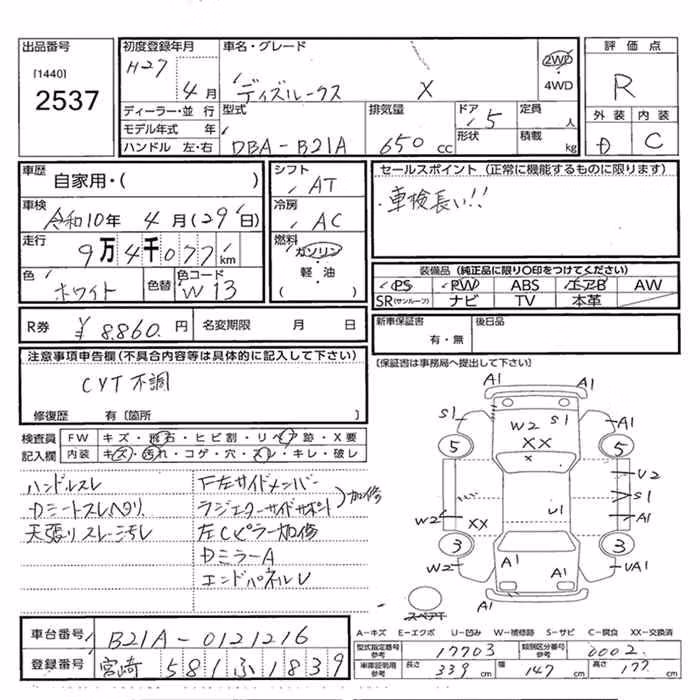 出品番号
[1440]
2537
初度登録年月
H27年 4月
車名・グレード
ディズルークス X
2WD
4WD
評価点
R
外装 内装
D C
ディーラー・並行
モデル年式 年
ハンドル 左・右
型式
DBA-B21A
排気量
650 cc
ドア
5
形状
定員
人
積載
kg
車歴
自家用・( )
車検
令和10年 4月(29日)
走行
9万4千077km
色
ホワイト
色替
色コード
W13
シフト
AT
冷房
AC
燃料
ガソリン
・
軽・油
( )
セールスポイント (正常に機能するものに限ります)
・車検長い!!
装備品 (純正品に限り○印をつけてください)
PS PW ABS エアB AW
SR(サンルーフ) ナビ TV 本革
R券
¥8,860.円
名変期限 月 日
新車保証書
有・無
後日品
[保証書は事務局へ提出して下さい]
注意事項申告欄(不具合内容等は具体的に記入して下さい)
CVT不調
修復歴 有〔箇所 〕
検査員 FW キズ・飛石・ヒビ割・リペア跡・X要
記入欄 内装 キズ・汚れ・コゲ・穴・スレ・キレ・破レ
ハンドルスレ
Dシートスレヘタリ
天張りスレ汚レ
F左サイドメンバー
ラジエターサイドサポート)加修
左Cピラー加修
DミラーA
エンドパネルU
A1 A1
S1 W2 S1 A1
XX
5 5
X
U2
S1
W2 XX U1 A1
3 3
W2 A1 A1 UA1
A1
スペアT
A1
車台番号
B21A-0121216
登録番号
宮崎 581ふ1839
A-キズ E-エクボ U-凹み W-補修跡 S-サビ C-腐食 XX-交換済
型式指定番号 参考 17703
類別区分番号 参考 0002
車庫証明用 参考 長さ 339 cm 幅 147 cm 高さ 177 cm